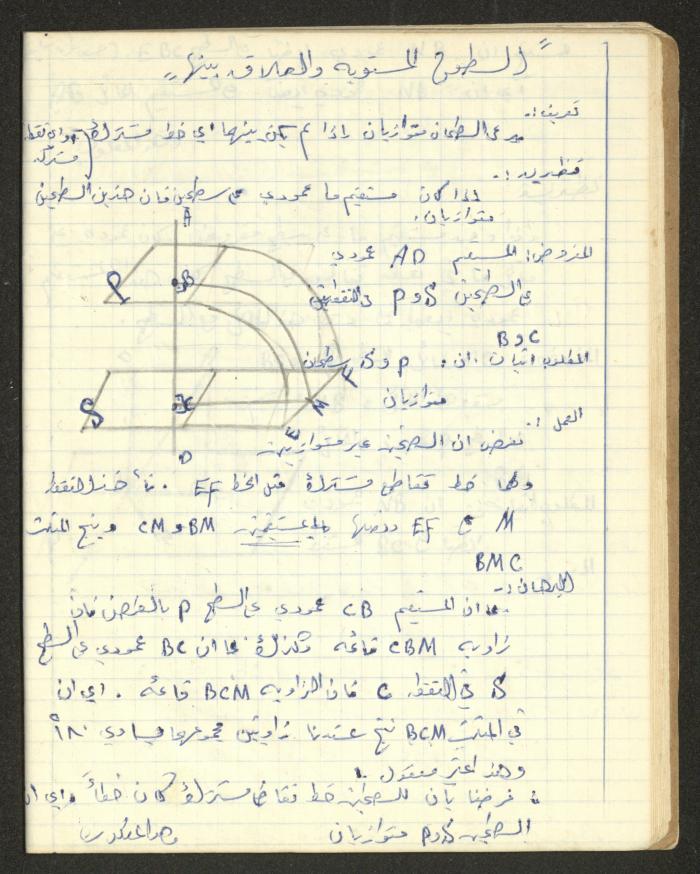 " السطوح المستويه والعلاقه بينها "
تعريف :
يدعى السطحان متوازيان اذا لم يكن بينهما اي خط مشترك (او اي نقطة
مشتركه
نظريه :
اذا كان مستقيم ما عمودي على سطحين فان هذين السطحين
متوازيان.
A
المفروض: المستقيم AD عمودي
على السطحين S و P في النقطتين
B و C
P
B
المطلوب اثبات ان : P و S سطحان
متوازيان
S
C
F
M
E
D
العمل :
نفرض ان السطحين غير متوازيين
ولهما خط تقاطع مشترك مثل الخط EF . نأخذ النقطة
M في EF ونصلها بالمستقيمين BM و CM وينتج المثلث
BMC
البرهان :-
بما ان المستقيم CB عمودي على السطح P بالفرض فان
زاويه CBM قائمه وكذلك بما ان BC عمودي على السطح
S في النقطه C فان الزاويه BCM قائمه . اي ان
في المثلث BCM نتج عندنا زاويتين مجموعهما يساوي ١٨٠°
وهذا غير معقول .
فرضنا بأن للسطحين خط تقاطع مشترك كان خطأ واي ان
السطحين S و P متوازيان وهو المطلوب